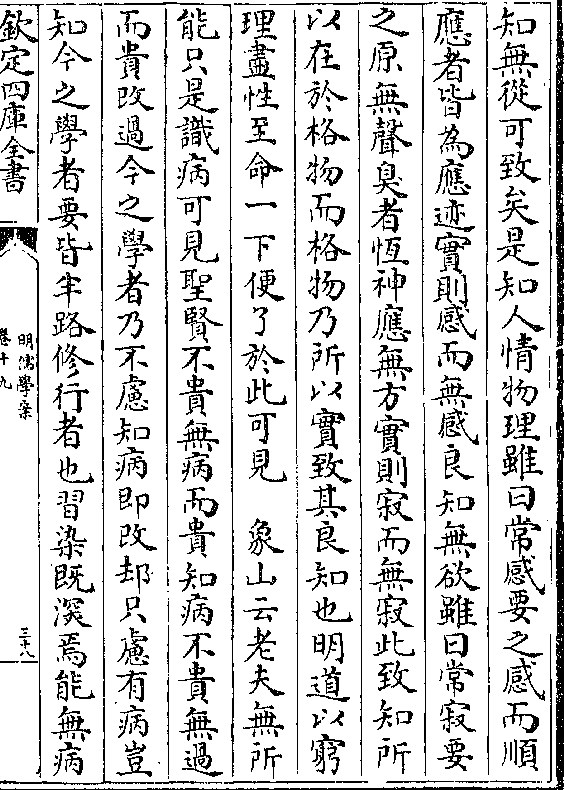 知無從可致矣是知人情物理雖曰常感要之感而順
應者皆為應迹實則感而無感良知無欲雖曰常寂要
之原無聲臭者恆神應無方實則寂而無寂此致知所
以在於格物而格物乃所以實致其良知也明道以窮
理盡性至命一下便了於此可見　象山云老夫無所
能只是識病可見聖賢不貴無病而貴知病不貴無過
而貴改過今之學者乃不慮知病即改却只慮有病豈
知今之學者要皆半路修行者也習染既深焉能無病
欽定四庫全書
明儒學案
卷十九
三十八